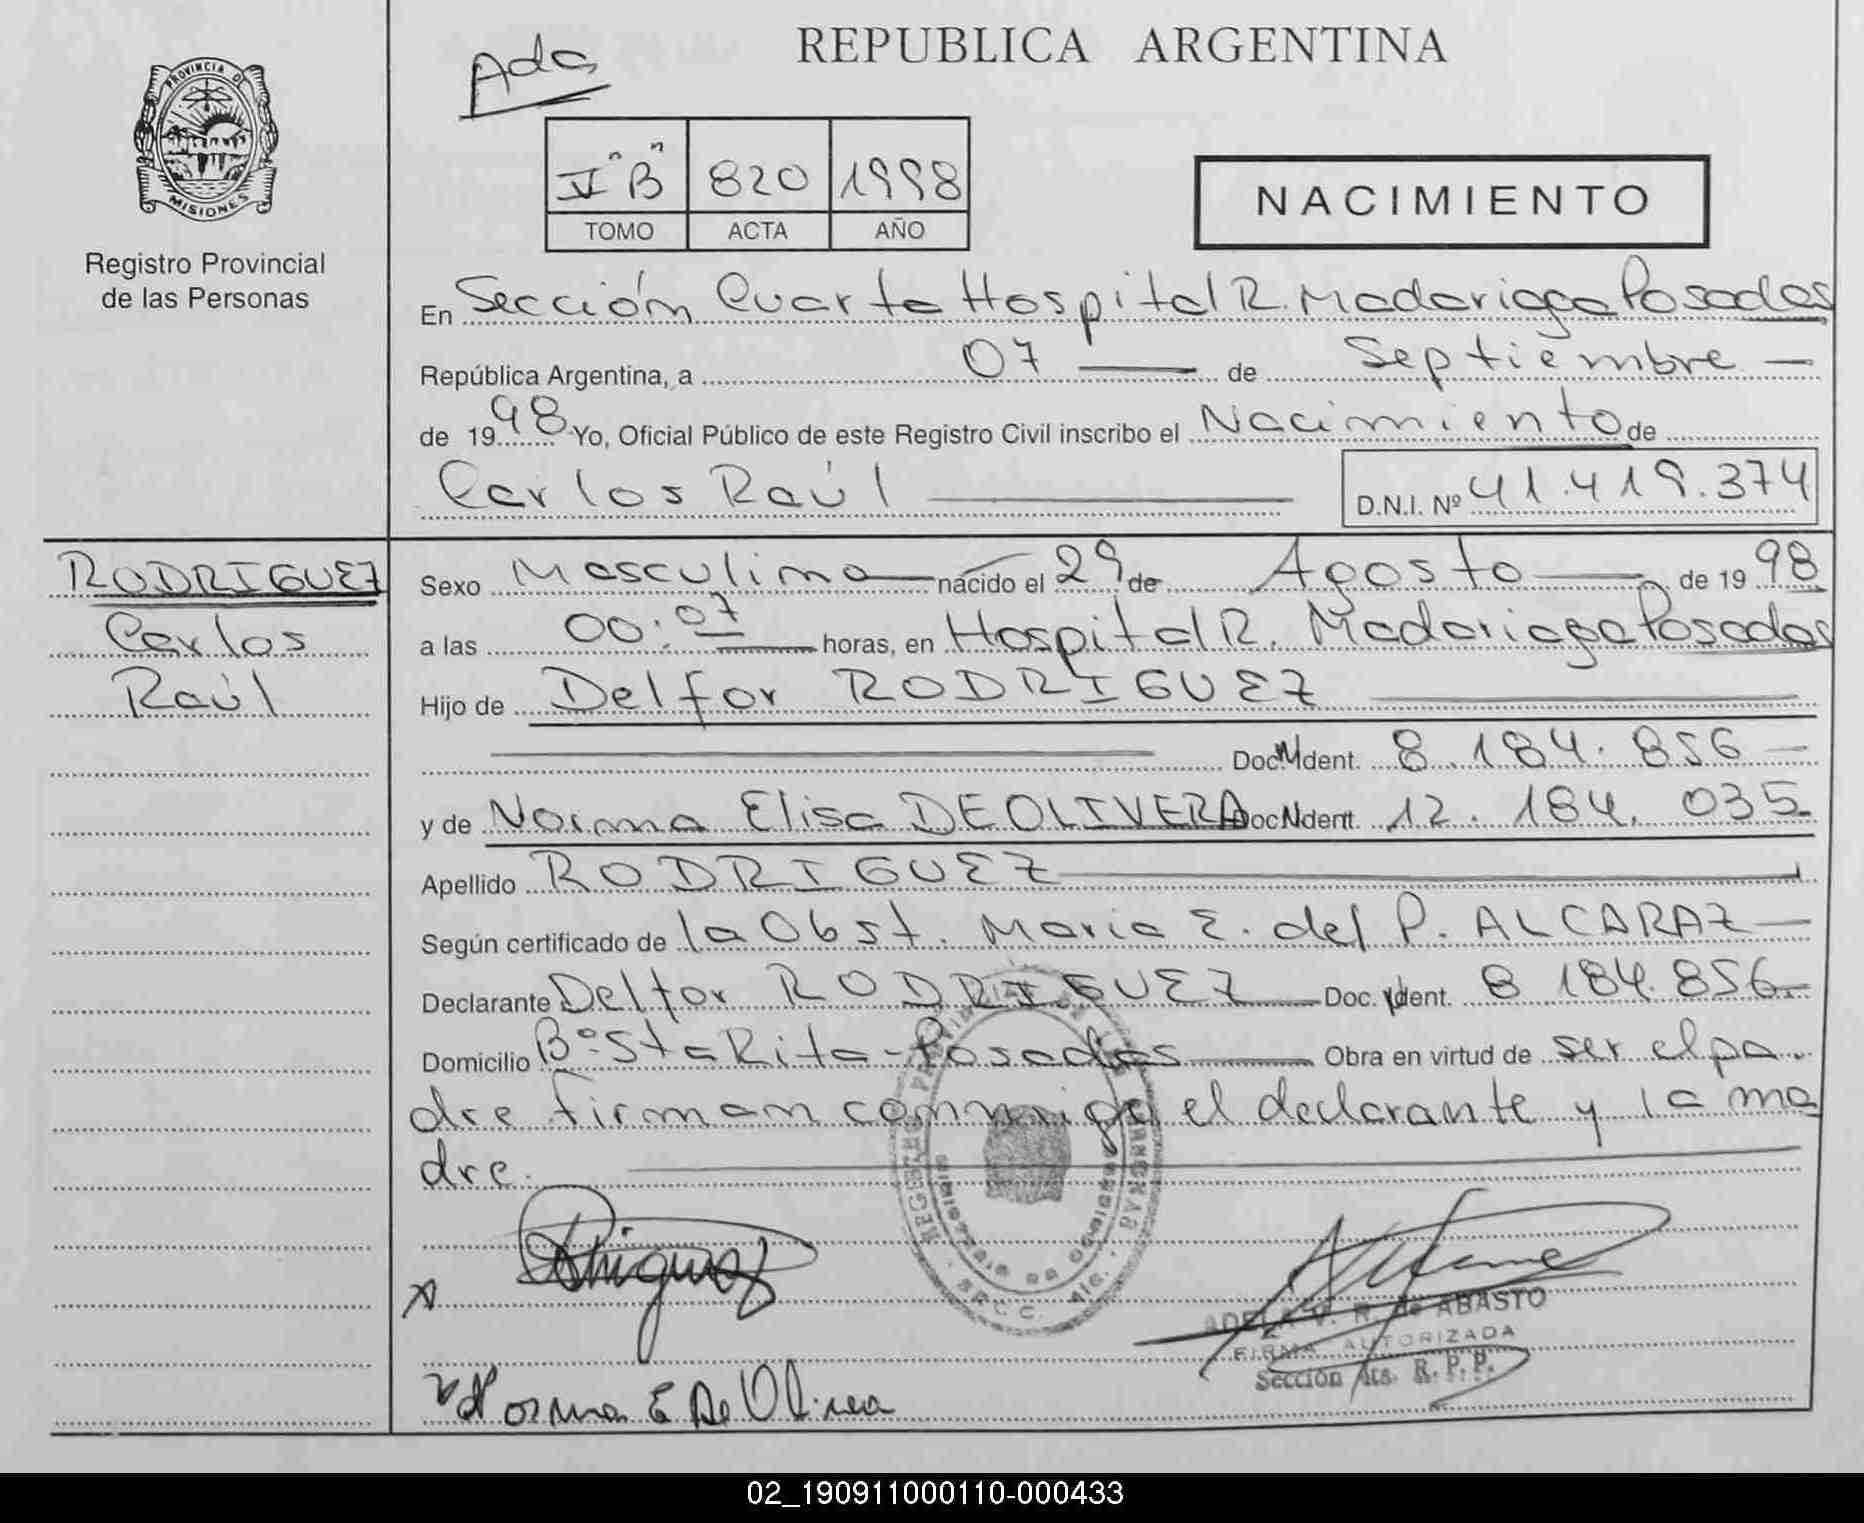 Ada
REPUBLICA ARGENTINA
PROVINCIA DE
MISIONES
Registro Provincial
de las Personas
V "B" 820 1998
TOMO ACTA AÑO
NACIMIENTO
En Sección Cuarta Hospital R. Madariaga Posadas
República Argentina, a 07 de Septiembre
de 1998 Yo, Oficial Público de este Registro Civil inscribo el Nacimiento de
Carlos Raúl D.N.I. Nº 41.419.374
RODRIGUEZ
Carlos
Raúl
Sexo Masculino nacido el 29 de Agosto de 1998
a las 00:07 horas, en Hospital R. Madariaga Posadas
Hijo de Delfor RODRIGUEZ
Doc. Ident. 8.184.856
y de Norma Elisa DEOLIVERA Doc Ident. 12.184.035
Apellido RODRIGUEZ
Según certificado de la Obst. Maria E. del P. ALCARAZ
Declarante Delfor RODRIGUEZ Doc. Ident. 8 184.856
Domicilio Bº Sta Rita - Posadas Obra en virtud de ser el pa
dre firman conmigo el declarante y la ma
dre.
ADELA V. R. de ABASTO
FIRMA AUTORIZADA
Sección 4ta. R. P. P.
Norma E De Olivera
02_190911000110-000433